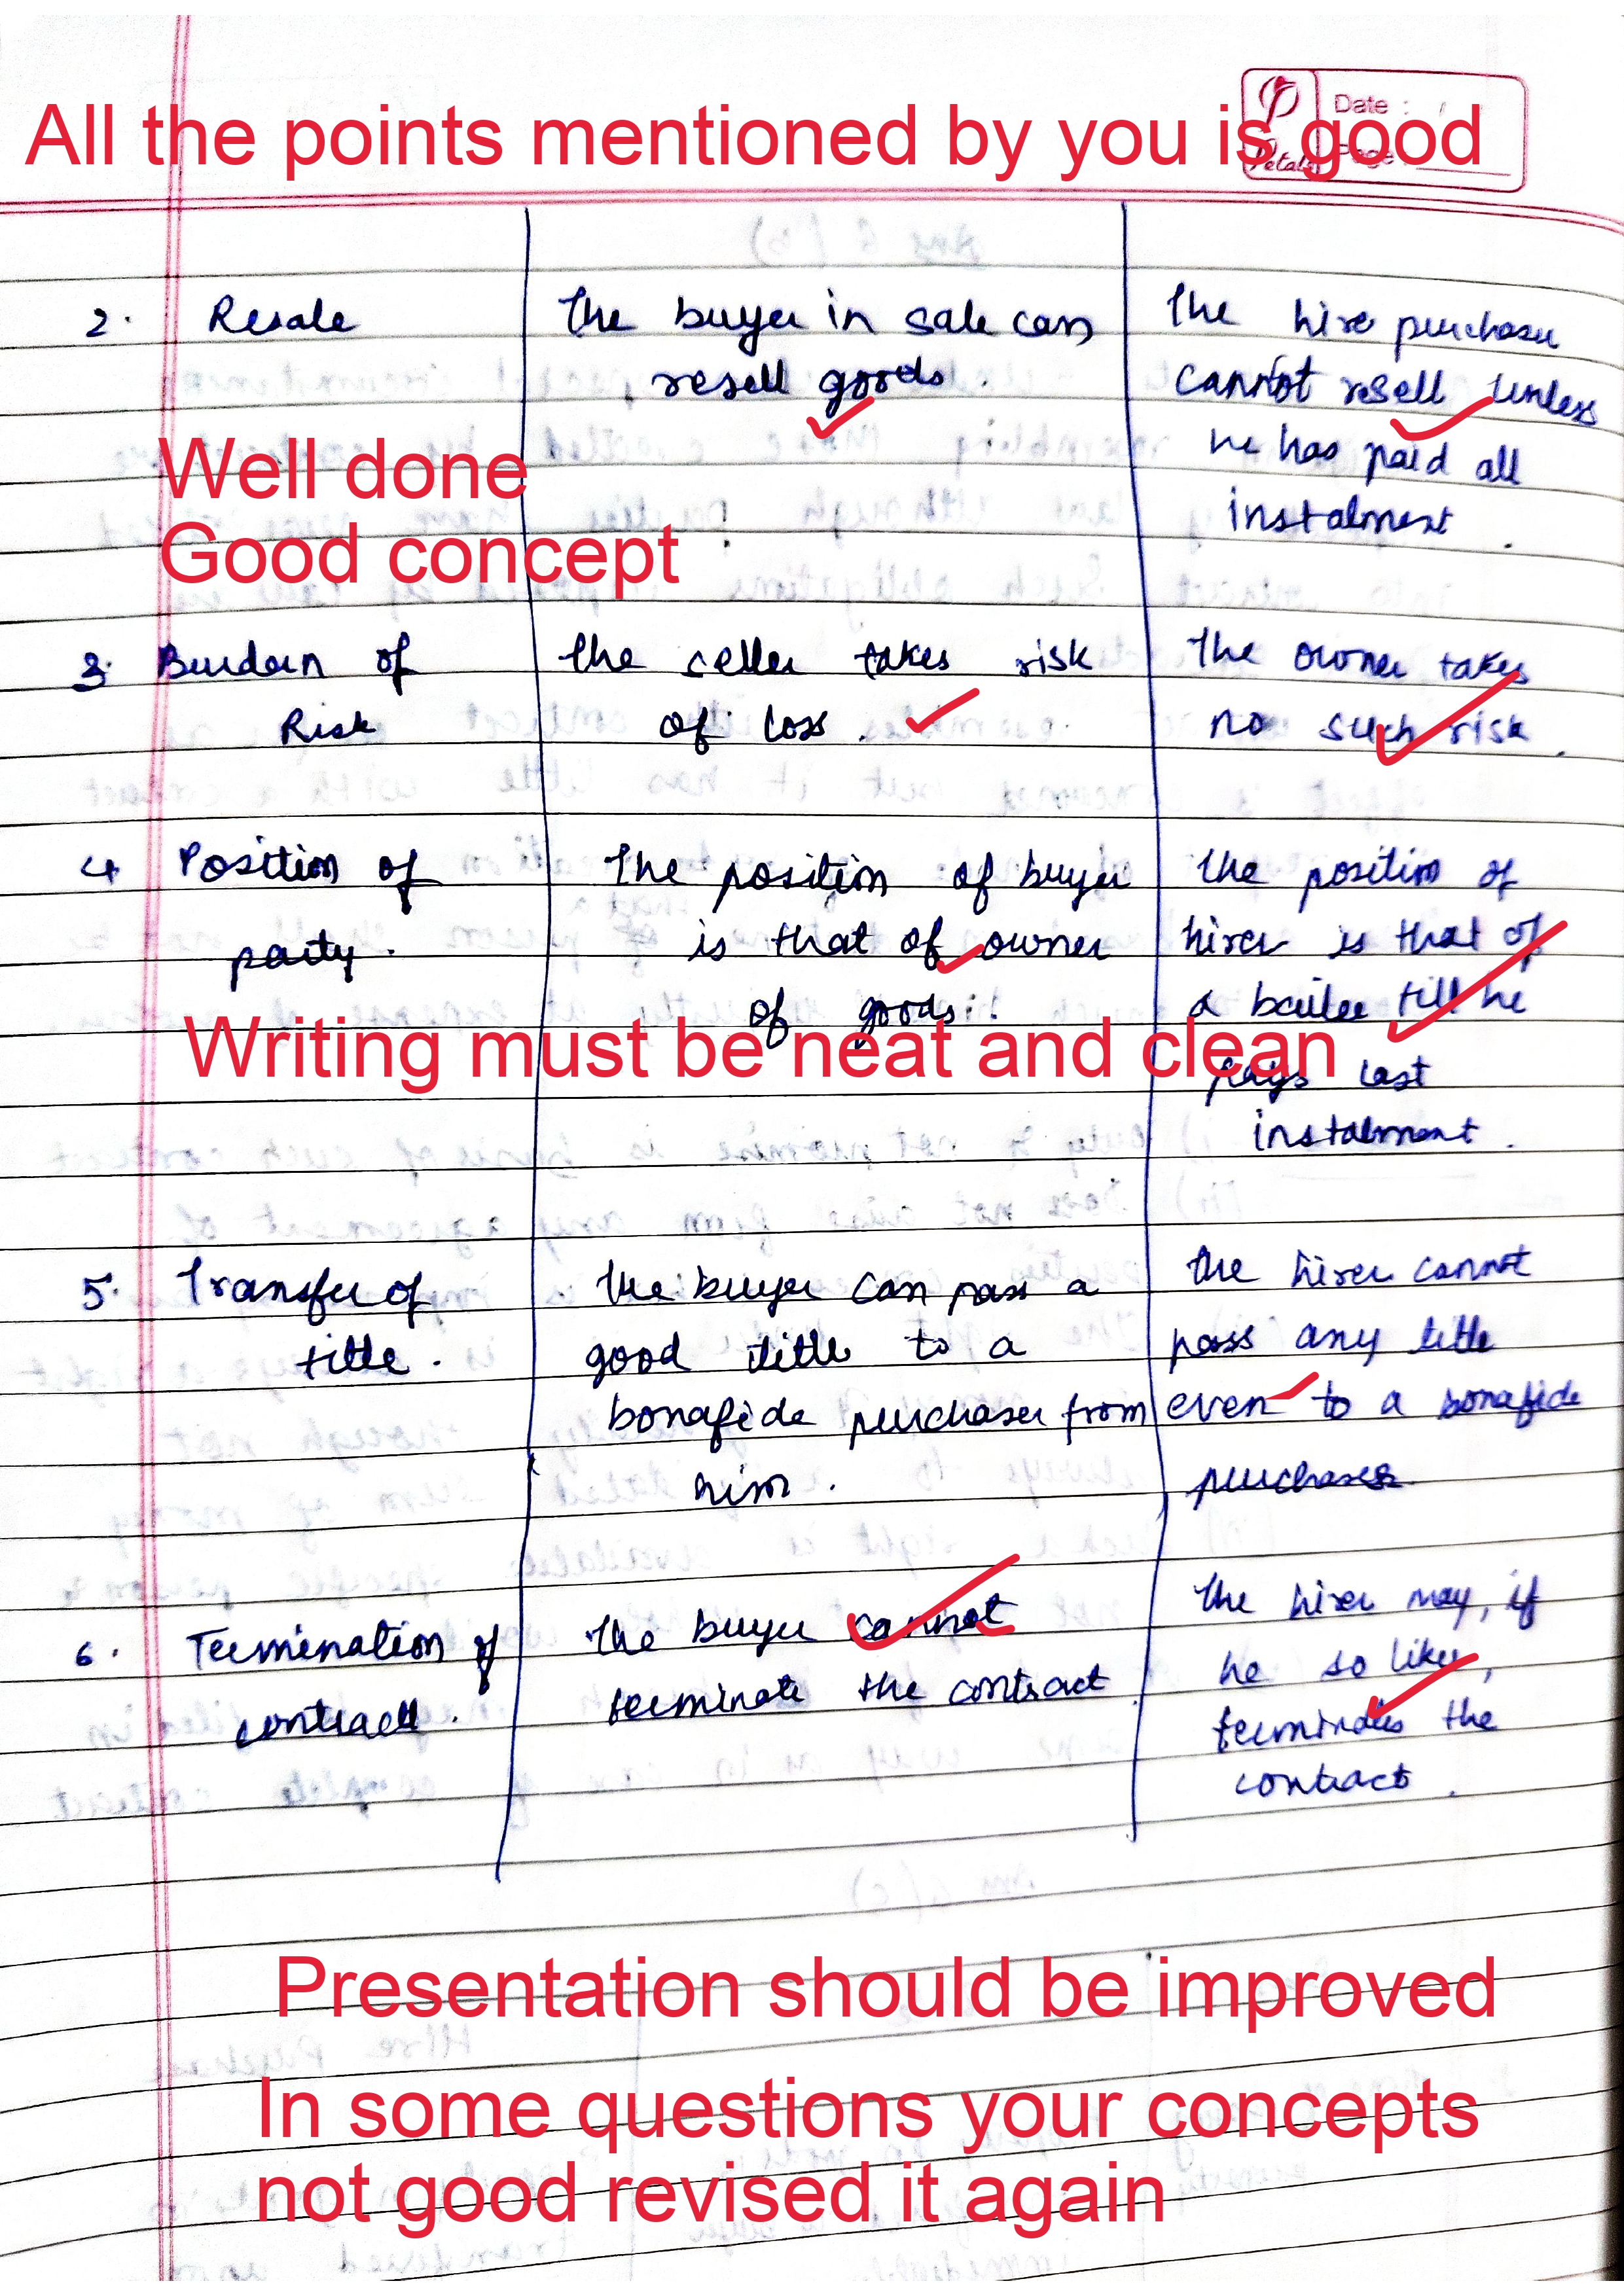 All the points mentioned by you is good
Date : /
Page
Petals
2. Resale
The buyer in sale can
resell goods.
The hire purchaser
cannot resell unless
he has paid all
instalment.
Well done
Good concept
3. Burden of
Risk
The celler takes risk
of loss.
The owner takes
no such risk.
4 Position of
party.
The position of buyer
is that of owner
of goods.
The position of
hirer is that of
a bailee till he
pays last
instalment.
Writing must be neat and clean
5. Transfer of
title.
The buyer can pass a
good title to a
bonafide purchaser from
him.
The hirer cannot
pass any title
even to a bonafide
purchaser
6. Termination of
contract.
The buyer cannot
terminate the contract.
The hirer may, if
he so likes,
terminates the
contract.
Presentation should be improved
In some questions your concepts
not good revised it again